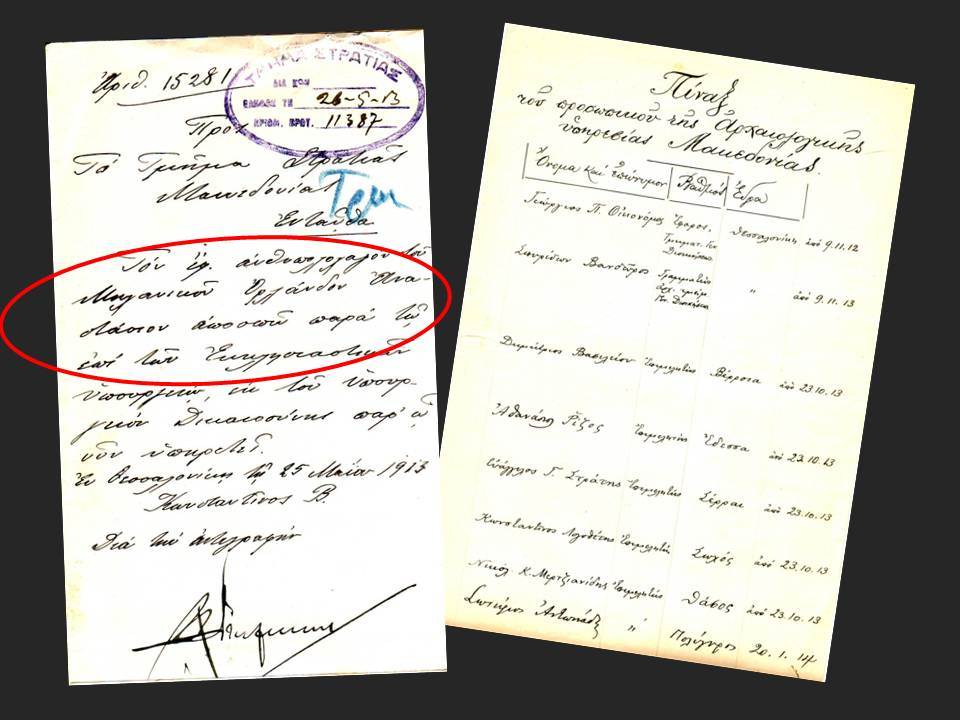 Ἀριθ. 15281
ΤΜΗΜΑ ΣΤΡΑΤΙΑΣ
26-5-13
ΑΡΙΘΜ. ΠΡΩΤ. 11387
Πρὸς
Τὸ Τμῆμα Στρατιᾶς
Μακεδονίας
Ἐνταῦθα
Τὸν ἔφ. ἀνθυπολοχαγὸν τοῦ
Μηχανικοῦ Ὀρλάνδον Ἀνα-
στάσιον ἀποσπῶ παρὰ τῷ
ἐπὶ τῶν Ἐκκλησιαστικῶν
ὑπουργείῳ, ἐκ τοῦ ὑπουρ-
γείου Δικαιοσύνης παρ' ᾧ
νῦν ὑπηρετεῖ.
Ἐν Θεσσαλονίκῃ τῇ 25 Μαΐου 1913
Κωνσταντῖνος Β.
Διὰ τὴν ἀντιγραφὴν
Πίναξ
τοῦ προσωπικοῦ τῆς Ἀρχαιολογικῆς
ὑπηρεσίας Μακεδονίας.
Ὄνομα καὶ ἐπώνυμον Βαθμὸς Ἕδρα
Γεώργιος Π. Οἰκονόμος Ἔφορος Θεσσαλονίκη ἀπὸ 9.11.12
Τμηματ. Γεν.
Διοικήσεως
Σπυρίδων Βανδῶρος Γραμματεὺς " ἀπὸ 9.11.13
ἀρχ. τμήμ.
Γεν. Διοικήσεως
Δημήτριος Βασιλείου Ἐπιμελητὴς Βέρροια ἀπὸ 23.10.13
Ἀθανάσιος Ῥίζος Ἐπιμελητὴς Ἔδεσσα ἀπὸ 23.10.13
Εὐάγγελος Γ. Στράτης Ἐπιμελητὴς Σέρραι ἀπὸ 23.10.13
Κωνσταντῖνος Λογοθέτης Ἐπιμελητὴς Σωχὸς ἀπὸ 23.10.13
Νικόλ. Κ. Μερτζιανίδης Ἐπιμελητὴς Θάσος ἀπὸ 23.10.13
Σωτήριος Ἀντωνιάδης " Πολύγυρος 20.1.14